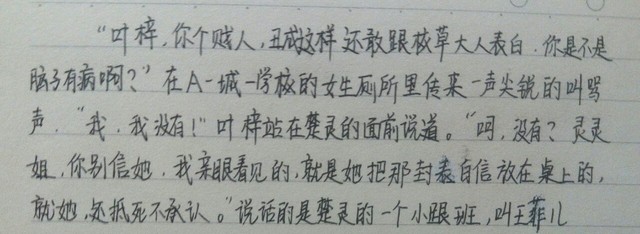 “叶梓,你个贱人,丑成这样还敢跟校草大人表白.你是不是
脑子有病啊?”在A一城一学校的女生厕所里传来一声尖锐的叫骂
声.“我.我没有!”叶梓站在楚灵的面前说道。“呵,没有?灵灵
姐,你别信她.我亲眼看见的,就是她把那封表白信放在桌上的,
就她,还抵死不承认。”说话的是楚灵的一个小跟班,叫王菲儿